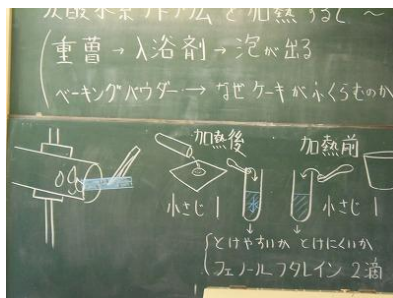 炭酸水素ナトリウムを加熱すると〜
重曹→入浴剤→泡が出る
ベーキングパウダー→なぜケーキがふくらむのか
加熱後 加熱前
小さじ1 水 小さじ1
とけやすいか とけにくいか
フェノールフタレイン2滴